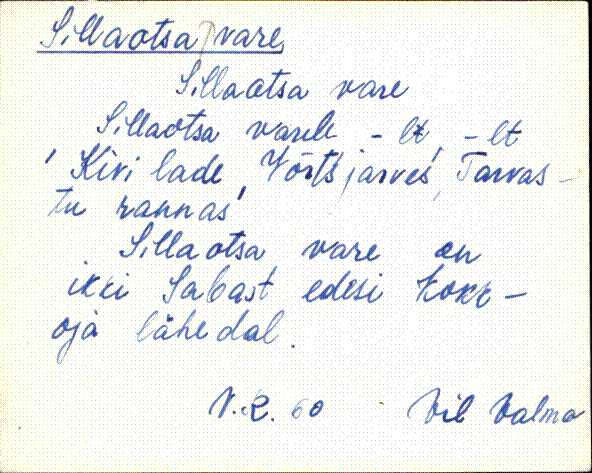 Sillaotsa vare
Sillaotsa vare
Sillaotsa varele -lt, -lt
'Kivilade Võrtsjärves, Tarvas-
tu rannas'
Sillaotsa vare on
ikki Sabast edesi Kokk-
oja lähedal.
V.R. 60 Vil Valma